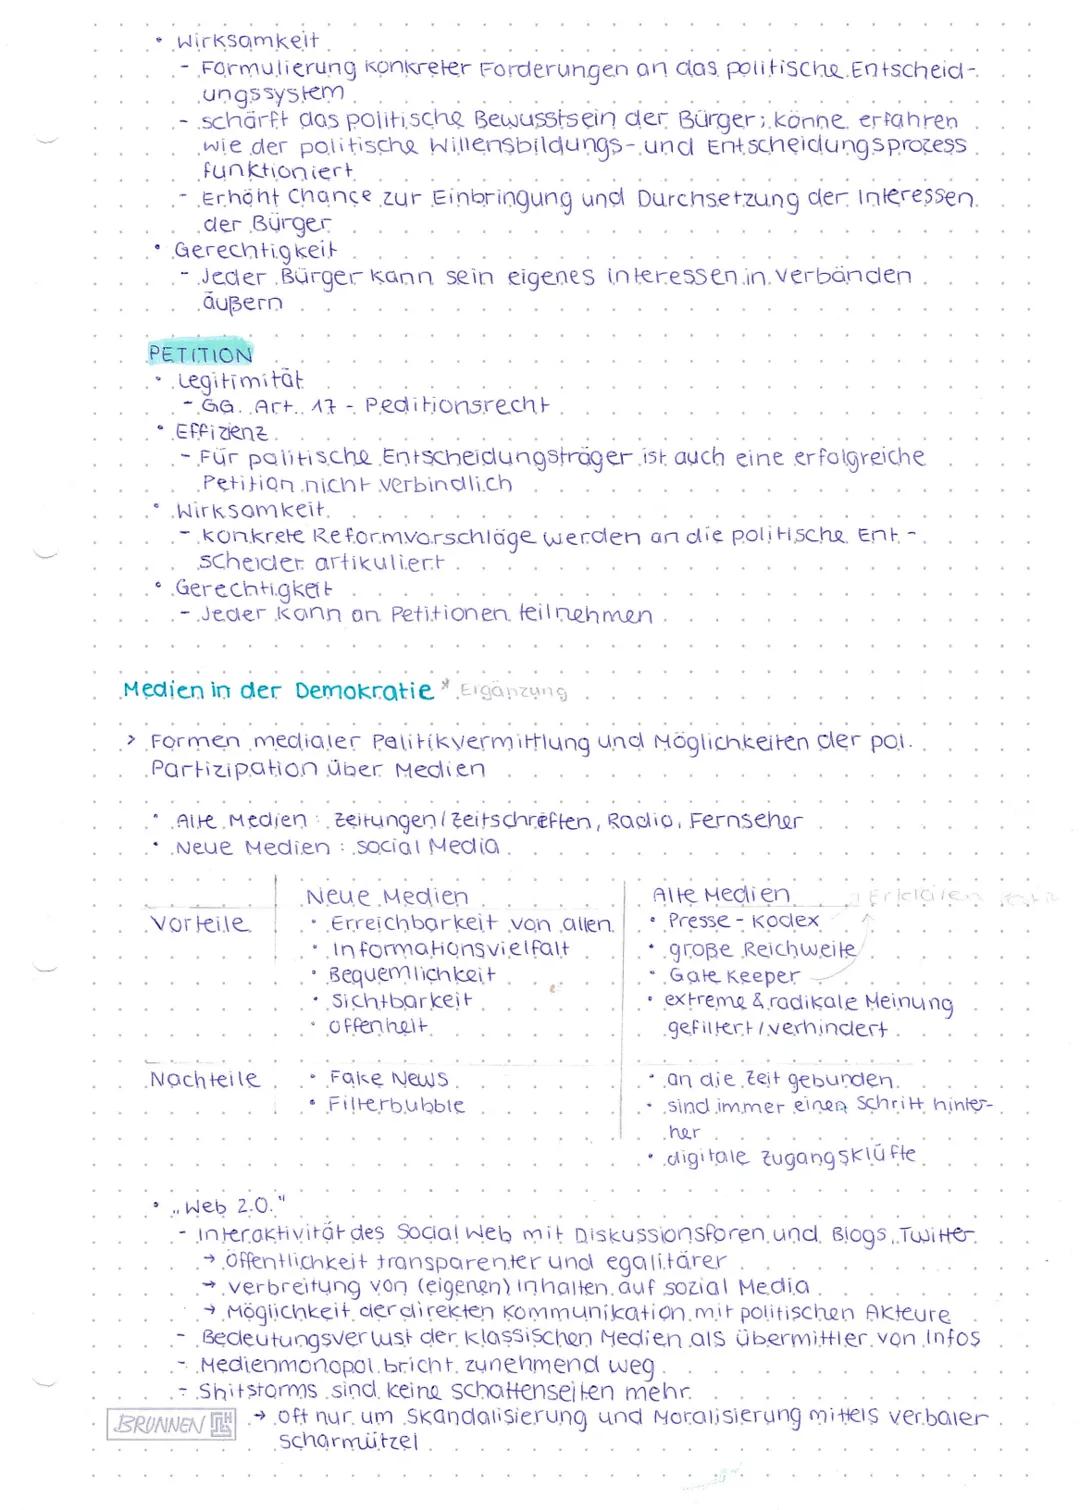 • Wirksamkeit
- Formulierung konkreter Forderungen an das politische Entscheid-
ungssystem
- schärft das politische Bewusstsein der Bürger; könne erfahren
wie der politische Willensbildungs- und Entscheidungsprozess
funktioniert
- Erhöht Chance zur Einbringung und Durchsetzung der Interessen
der Bürger
• Gerechtigkeit
- Jeder Bürger kann sein eigenes interessen in verbänden
äußern
PETITION
• Legitimität
- GG. Art. 17 - Peditionsrecht
• Effizienz
- Für politische Entscheidungsträger ist auch eine erfolgreiche
Petition nicht verbindlich
• Wirksamkeit
- konkrete Reformvorschläge werden an die politische Ent-
scheider artikuliert
• Gerechtigkeit
- Jeder kann an Petitionen teilnehmen
Medien in der Demokratie * Ergänzung
> Formen medialer Politikvermittlung und Möglichkeiten der pol.
Partizipation über Medien
• Alte Medien: Zeitungen/Zeitschreften, Radio, Fernseher
• Neue Medien: social Media
Neue Medien Alte Medien Erklären
Vorteile • Erreichbarkeit von allen • Presse-Kodex
• Informationsvielfalt • große Reichweite
• Bequemlichkeit • Gate Keeper
• Sichtbarkeit • extreme & radikale Meinung
• offenheit gefiltert/verhindert
Nachteile • Fake News • an die Zeit gebunden
• Filterbubble • sind immer einen Schritt hinter-
her
• digitale Zugangsklüfte
• „Web 2.0."
- Interaktivität des Social Web mit Diskussionsforen und Blogs, Twitter
→ Öffentlichkeit transparenter und egalitärer
→ verbreitung von (eigenen) Inhalten auf sozial Media
→ Möglichkeit der direkten Kommunikation mit politischen Akteure
- Bedeutungsverlust der klassischen Medien als übermittler von Infos
- Medienmonopol bricht zunehmend weg
- Shitstorms sind keine schattenseiten mehr
→ oft nur um Skandalisierung und Moralisierung mittels verbaler
scharmützel
BRUNNEN